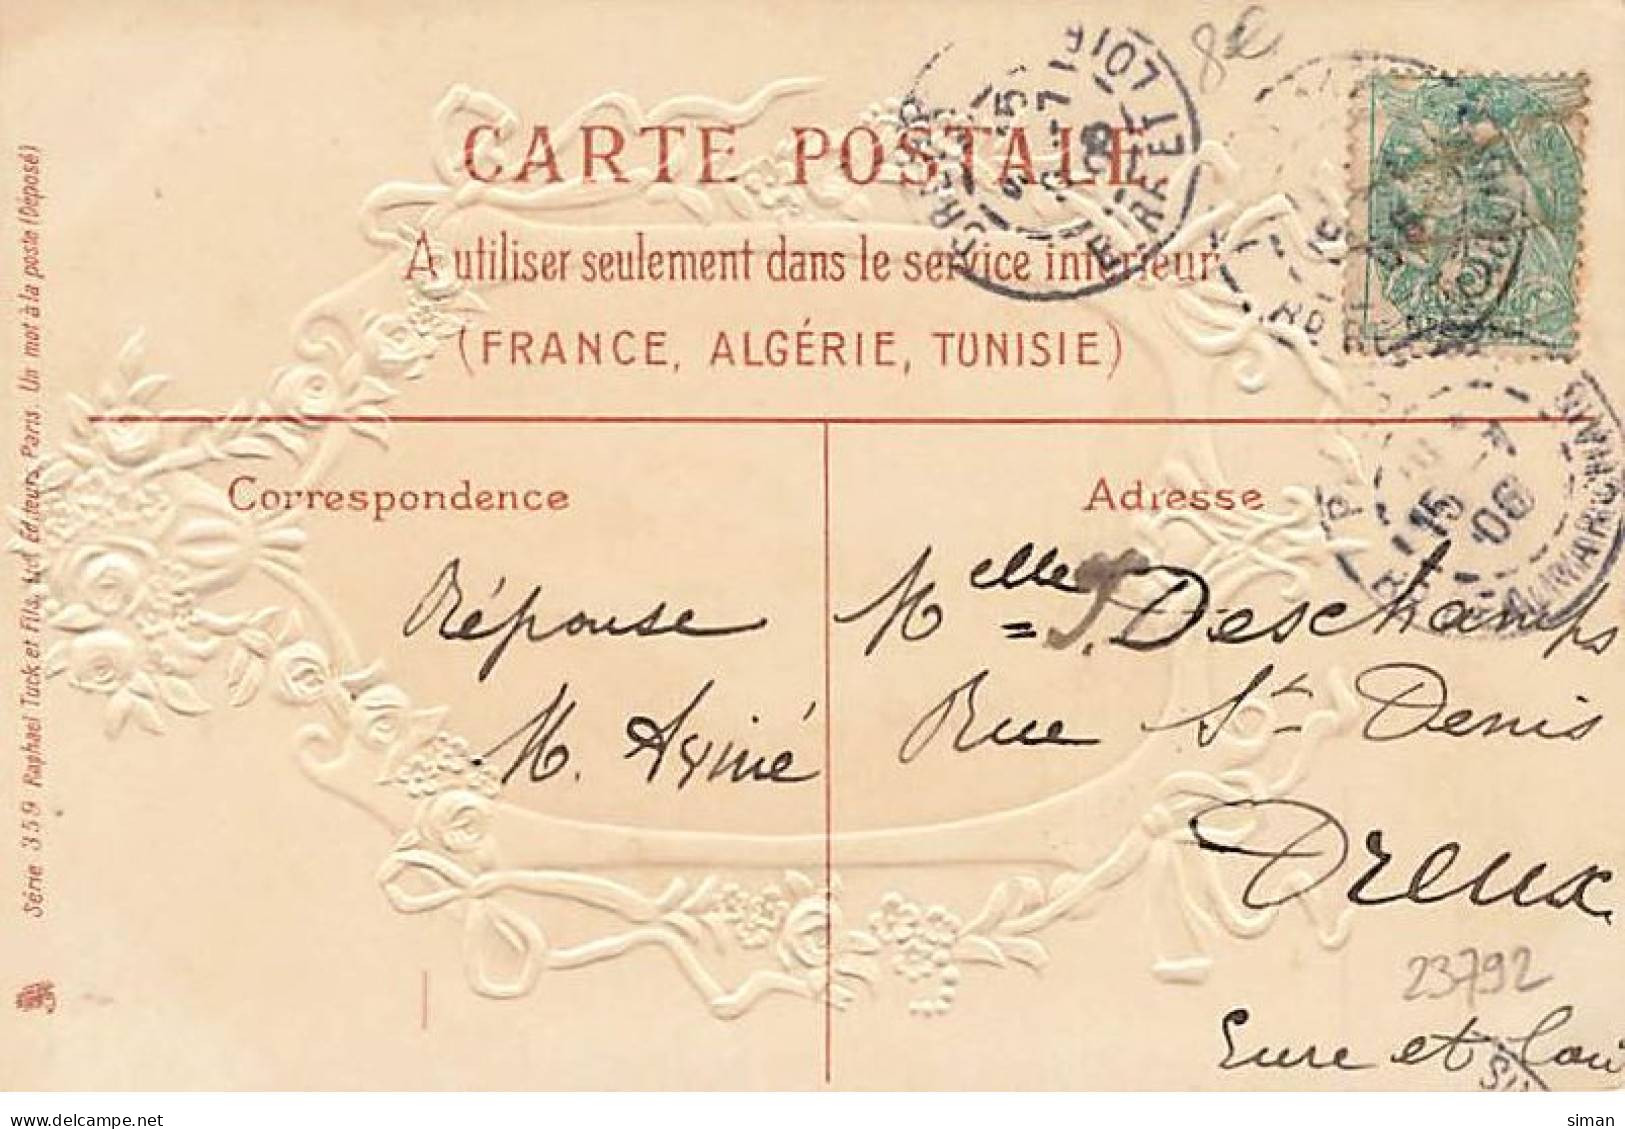 8€
CARTE POSTALE
A utiliser seulement dans le service intérieur
(FRANCE, ALGÉRIE, TUNISIE)
Correspondence
Adresse
Réponse
M. Aymé
Melle J. Deschamps
Rue St Denis
Dreux
23792
Eure et Loir
Série 359 Raphael Tuck et Fils, Ltd Editeurs, Paris. Un mot à la poste (Déposé)
EURE ET LOIR
15
-7
06
delcampe.net
siman